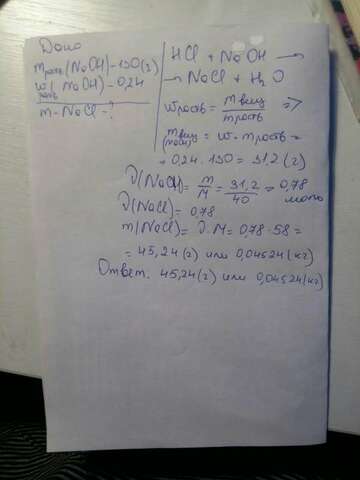 Дано
mраст(NaOH)-130(г)
w(NaOH)-0,24
раст
m-NaCl=?
HCl + NaOH →
→ NaCl + H₂O
wраств = mвещ/mраств =>
mвещ(NaOH) = w · mраств =
= 0,24 · 130 = 31,2 (г)
ν(NaOH) = m/M = 31,2/40 = 0,78 моль
ν(NaCl) = 0,78
m(NaCl) = ν · M = 0,78 · 58 =
= 45,24 (г) или 0,04524 (кг)
Ответ: 45,24 (г) или 0,04524 (кг)